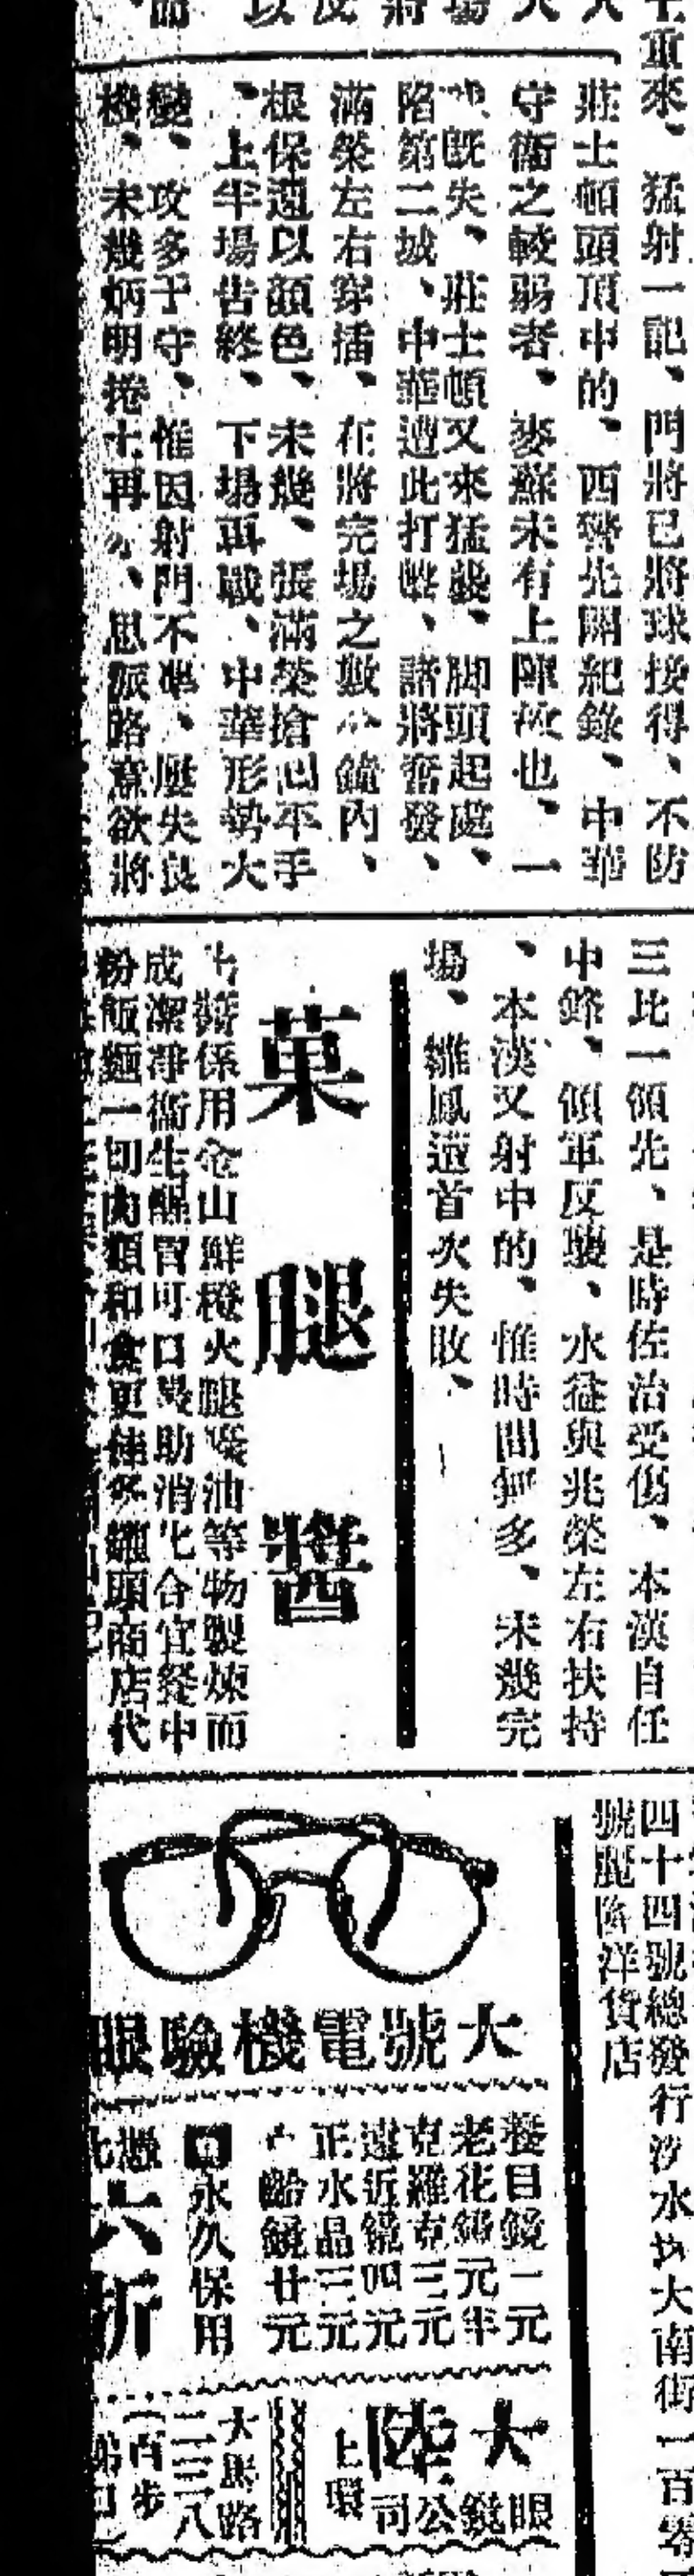 重來、猛射一記、門將已將球接得、不防
莊士頓頭頂中的、西警先開紀錄、中華
守衞之較弱者、麥蘇未有上陣故也、一
既失、莊士頓又來猛襲、脚頭起處、
陷第二城、中華遭此打擊、諸將奮發、
滿榮左右穿插、在將完塲之數分鐘內、
根保還以顏色、未幾、張滿榮搶回平手
、上半塲告終、下塲再戰、中華形勢大
變、攻多于守、惟因射門不準、屢失良
機、未幾炳明捲土再、思派路意欲將
三比一領先、是時佐治受傷、本漢自任
中鋒、領軍反襲、水益與兆榮左右扶持
、本漢又射中的、惟時間無多、未幾完
塲、雛鳳遭首次失敗、
菓腿醬
醬係用金山鮮橙火腿油等物製煉而
成潔淨衞生醒胃可口最助消化合宜中
粉飯麵一切肉類和食更佳各罐頭商店代
四十四號總發行汐水大南街一百零
號麗洋貨店
大號電機驗眼
養目鏡一元
老花鏡元半
克羅克三元
遠近鏡四元
正水晶三元
鏡廿元
永久保用
憑
六折
大陸
眼鏡公司
上環
大馬路
二三八
百步